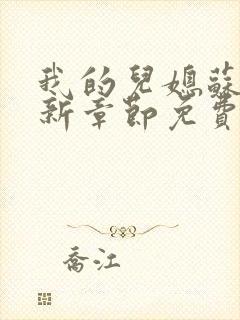 我的兒媳蘇
新章節免費
喬江